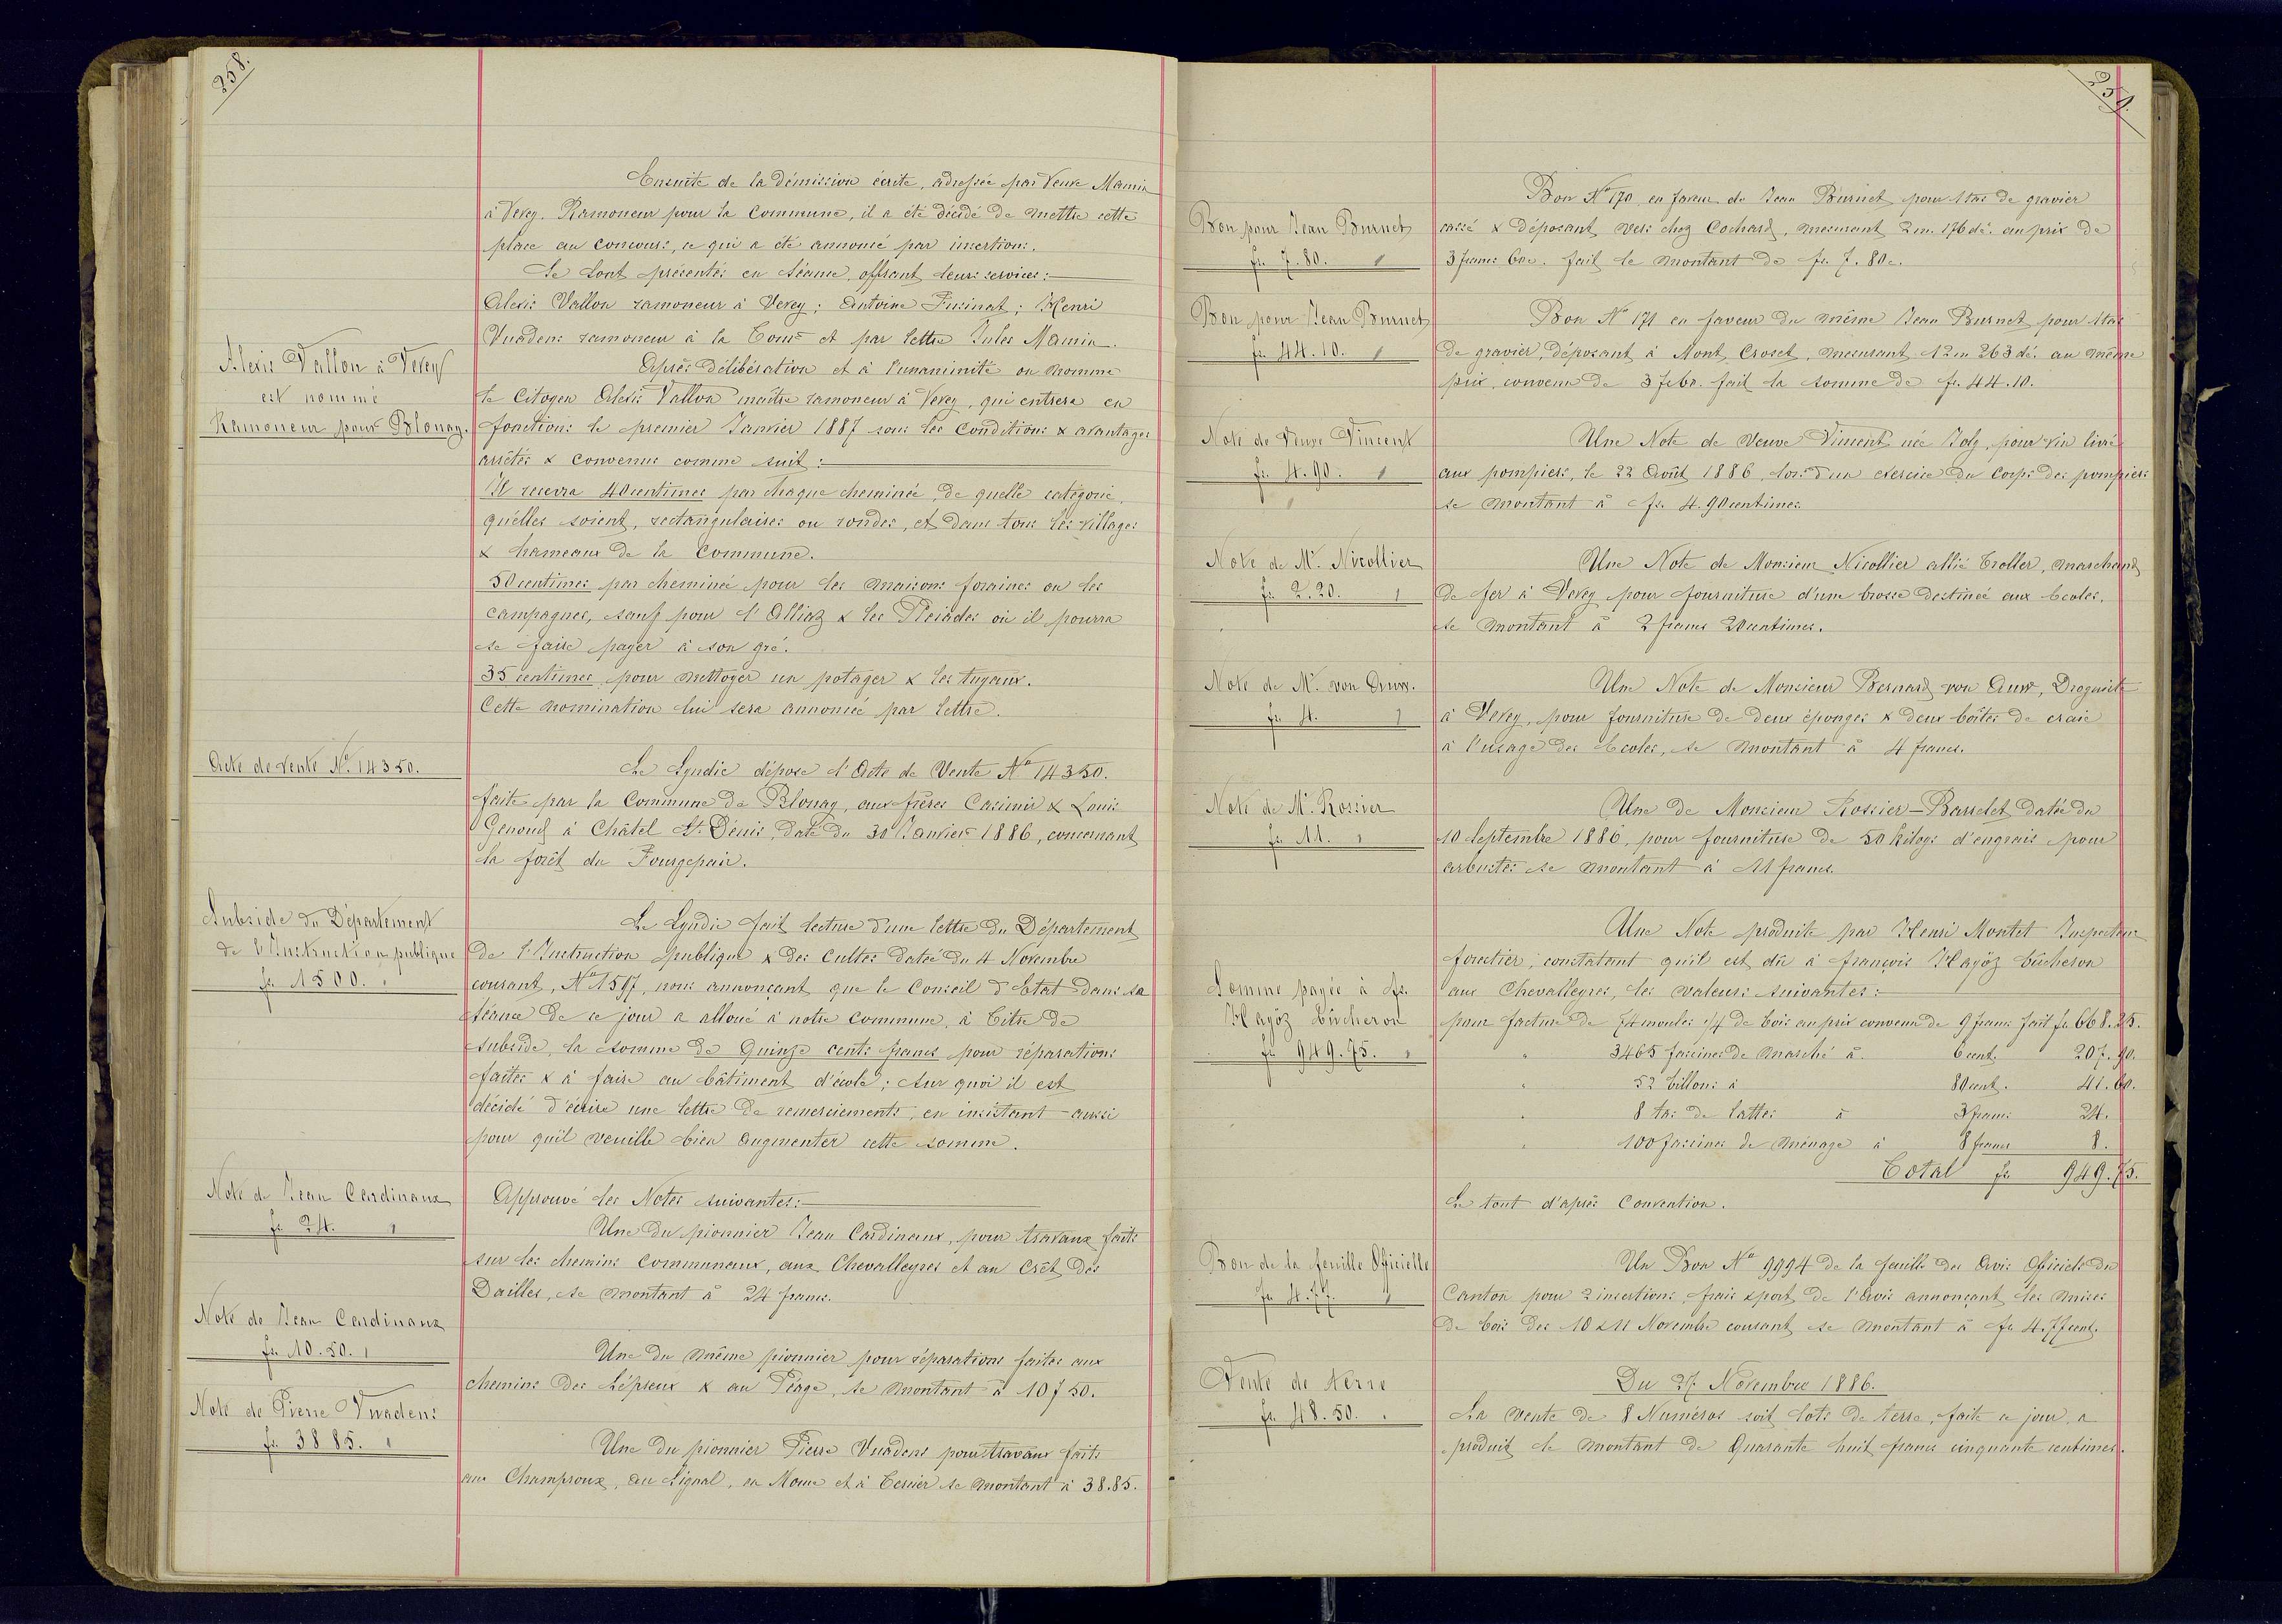 258.
Ensuite de la démission écrite, adressée par Veuve Mamin
à Vevey. Ramoneur pour la Commune, il a été décidé de mettre cette
place au concours, ce qui a été annoncé par insertions.
Se sont présentés en séance, offrant leurs services:
Alexis Vallon ramoneur à Vevey; Antoine ; Henri
Vuadens ramoneur à la Tour et par lettre Jules Mamin.
Après délibération et à l'unaminité on nomme
Alexis Vallon à Vevey
est nommé
Ramoneur pour Blonay.
le Citoyen Alexis Vallon maître ramoneur à Vevey, qui entrera en
fonctions le premier Janvier 1887 sous les Conditions & avantages
arrêtés & convenus comme suit:
Il recevra 40 centimes par chaque cheminée, de quelle catégorie,
qu'elles soient, rectangulaires ou rondes, et dans tous les villages
& hameaux de la Commune.
50 centimes par cheminée pour les maisons foraines ou les
campagnes, sauf pour l'Alliaz & les Pleiades où il pourra
se faire payer à son gré.
35 centimes pour nettoyer un potager & les tuyaux.
Cette nomination lui sera annoncée par lettre.
Acte de vente No. 14350.
Le Syndic dépose l'Acte de Vente No 14350.
faite par la Commune de Blonay, aux frères Casimir & Louis
Genoud à Châtel St. Dénis, daté du 30 Janvier 1886, concernant
la forêt du Fourgepair.
Subside du Département
de l'Instruction publique
fr. 1500.
Le Syndic fait lecture d'une lettre du Département
de l'Instruction publique & des Cultes datée du 4 Novembre
courant, No 1517, nous annonçant que le Conseil d'Etat dans sa
séance de ce jour a alloué à notre Commune, à titre de
subside, la somme de Quinze cents francs pour réparations
faites & à faire au bâtiment d'école; sur quoi il est
décidé d'écrire une lettre de remerciements, en insistant aussi
pour qu'il veuille bien augmenter cette somme.
Approuvé les Notes suivantes:
Note de Jean Cardinaux
fr. 24.
Une du pionnier Jean Cardinaux, pour travaux faits
sur les chemins Communaux, aux Chevalleyres et au Crêt des
Dailles, se montant à 24 francs.
Note de Jean Cardinaux
fr. 10.50.
Une du même pionnier pour réparations faites aux
chemins des Lépreux & au Péage, se montant à 10f 50.
Note de Pierre Vuadens
fr. 38 85.
Une du pionnier Pierre Vuadens pour travaux faits
aux Champsoux, au Signal, en Mouce et à Tercier se montant à 38.85.
259.
Bon pour Jean Burnet
fr. 7.80.
Bon No 170 en faveur de Jean Burnet pour 1 tas de gravier
cassé & déposant vers chez Cochard, mesurant 2m. 176 dé. au prix de
3 francs 60c. fait le montant de fr. 7.80c.
Bon pour Jean Burnet
fr. 44.10.
Bon No 171 en faveur du même Jean Burnet pour 1 tas
de gravier, déposant à Mont Croset, mesurant 12m 263 dé. au même
prix convenu de 3 fr 60. fait la somme de fr. 44.10.
Note de Veuve Vincent
fr. 4.90.
Une Note de Veuve Vincent née pour vin livré
aux pompiers, le 22 Août 1886, lors d'un exercice du Corps des pompiers
se montant à fr. 4.90 centimes.
Note de Mr. Nicollier
fr. 2.20.
Une Note de Monsieur Nicollier allié Troller, marchand
de fer à Vevey pour fourniture d'une brosse destinée aux Ecoles,
se montant à 2 francs 20 centimes.
Note de Mr. von Auw.
fr. 4.
Une Note de Monsieur Bernard von Auw, Droguiste
à Vevey, pour fourniture de deux éponges & deux boîtes de craie
à l'usage des Ecoles, se montant à 4 francs.
Note de Mr. Rossier
fr. 11.
Une de Monsieur Rossier-Barrelet datée du
10 Septembre 1886, pour fourniture de 50 kilogs d'engrais pour
arbustes se montant à 11 francs.
Somme payée à fr.
Hayöz Bûcheron
fr. 949.75.
Une Note produite par Henri Montet Inspecteur
forestier, constatant qu'il est dû à françois Hayöz bûcheron
aux Chevalleyres, les valeurs suivantes:
pour facture de 74 moules 1/4 de bois au prix convenu de 9 francs fait fr. 668.25.
" 3465 fascines de marché à 6 cent. 207.90.
" 52 billons à 80 cent. 41.60.
" 8 tas de lattes à 3 francs 24.
" 100 fascines de ménage à 8 francs 8.
Total fr. 949.75.
Le tout d'après Convention.
Bon de la feuille Officielle
fr. 4.77.
Un Bon No 9994 de la feuille des Avis Officiels du
Canton pour 2 insertions, frais & port de l'Avis annonçant les mises
de bois des 10 & 11 Novembre courant se montant à fr. 4.77 cent.
Du 27 Novembre 1886.
Vente de terre
fr. 48.50.
La vente de 8 Numéros soit lots de terre, faite ce jour, a
produit le montant de Quarante huit francs cinquante centimes.